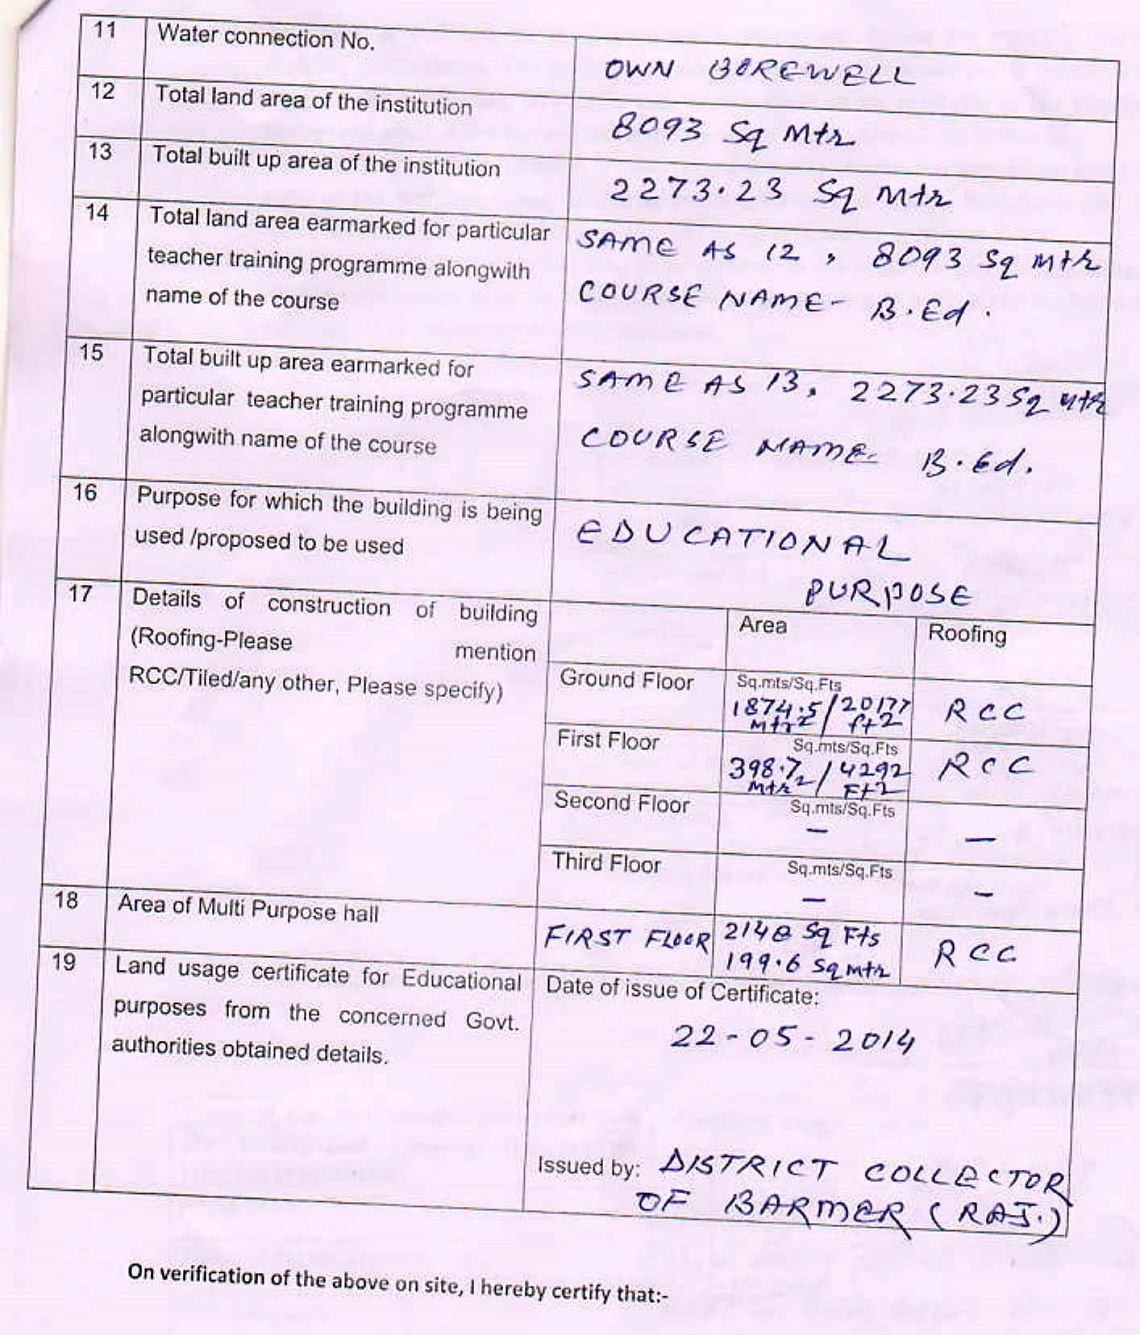 11 Water connection No. OWN BOREWELL
12 Total land area of the institution 8093 Sq Mtr
13 Total built up area of the institution 2273.23 Sq Mtr
14 Total land area earmarked for particular SAME AS 12, 8093 Sq Mtr
teacher training programme alongwith COURSE NAME- B.Ed.
name of the course
15 Total built up area earmarked for SAME AS 13, 2273.23 Sq Mtr
particular teacher training programme
alongwith name of the course COURSE NAME- B.Ed.
16 Purpose for which the building is being EDUCATIONAL
used /proposed to be used PURPOSE
17 Details of construction of building Area Roofing
(Roofing-Please mention
RCC/Tiled/any other, Please specify)
Ground Floor Sq.mts/Sq.Fts
1874.5 / 20177 RCC
Mtr2 ft2
First Floor Sq.mts/Sq.Fts
398.7 / 4292 RCC
Mtr2 Ft2
Second Floor Sq.mts/Sq.Fts
— —
Third Floor Sq.mts/Sq.Fts
— —
18 Area of Multi Purpose hall FIRST FLOOR 2148 Sq Fts RCC
199.6 Sq mtr
19 Land usage certificate for Educational Date of issue of Certificate:
purposes from the concerned Govt. 22-05-2014
authorities obtained details.
Issued by: DISTRICT COLLECTOR
OF BARMER (RAJ.)
On verification of the above on site, I hereby certify that:-